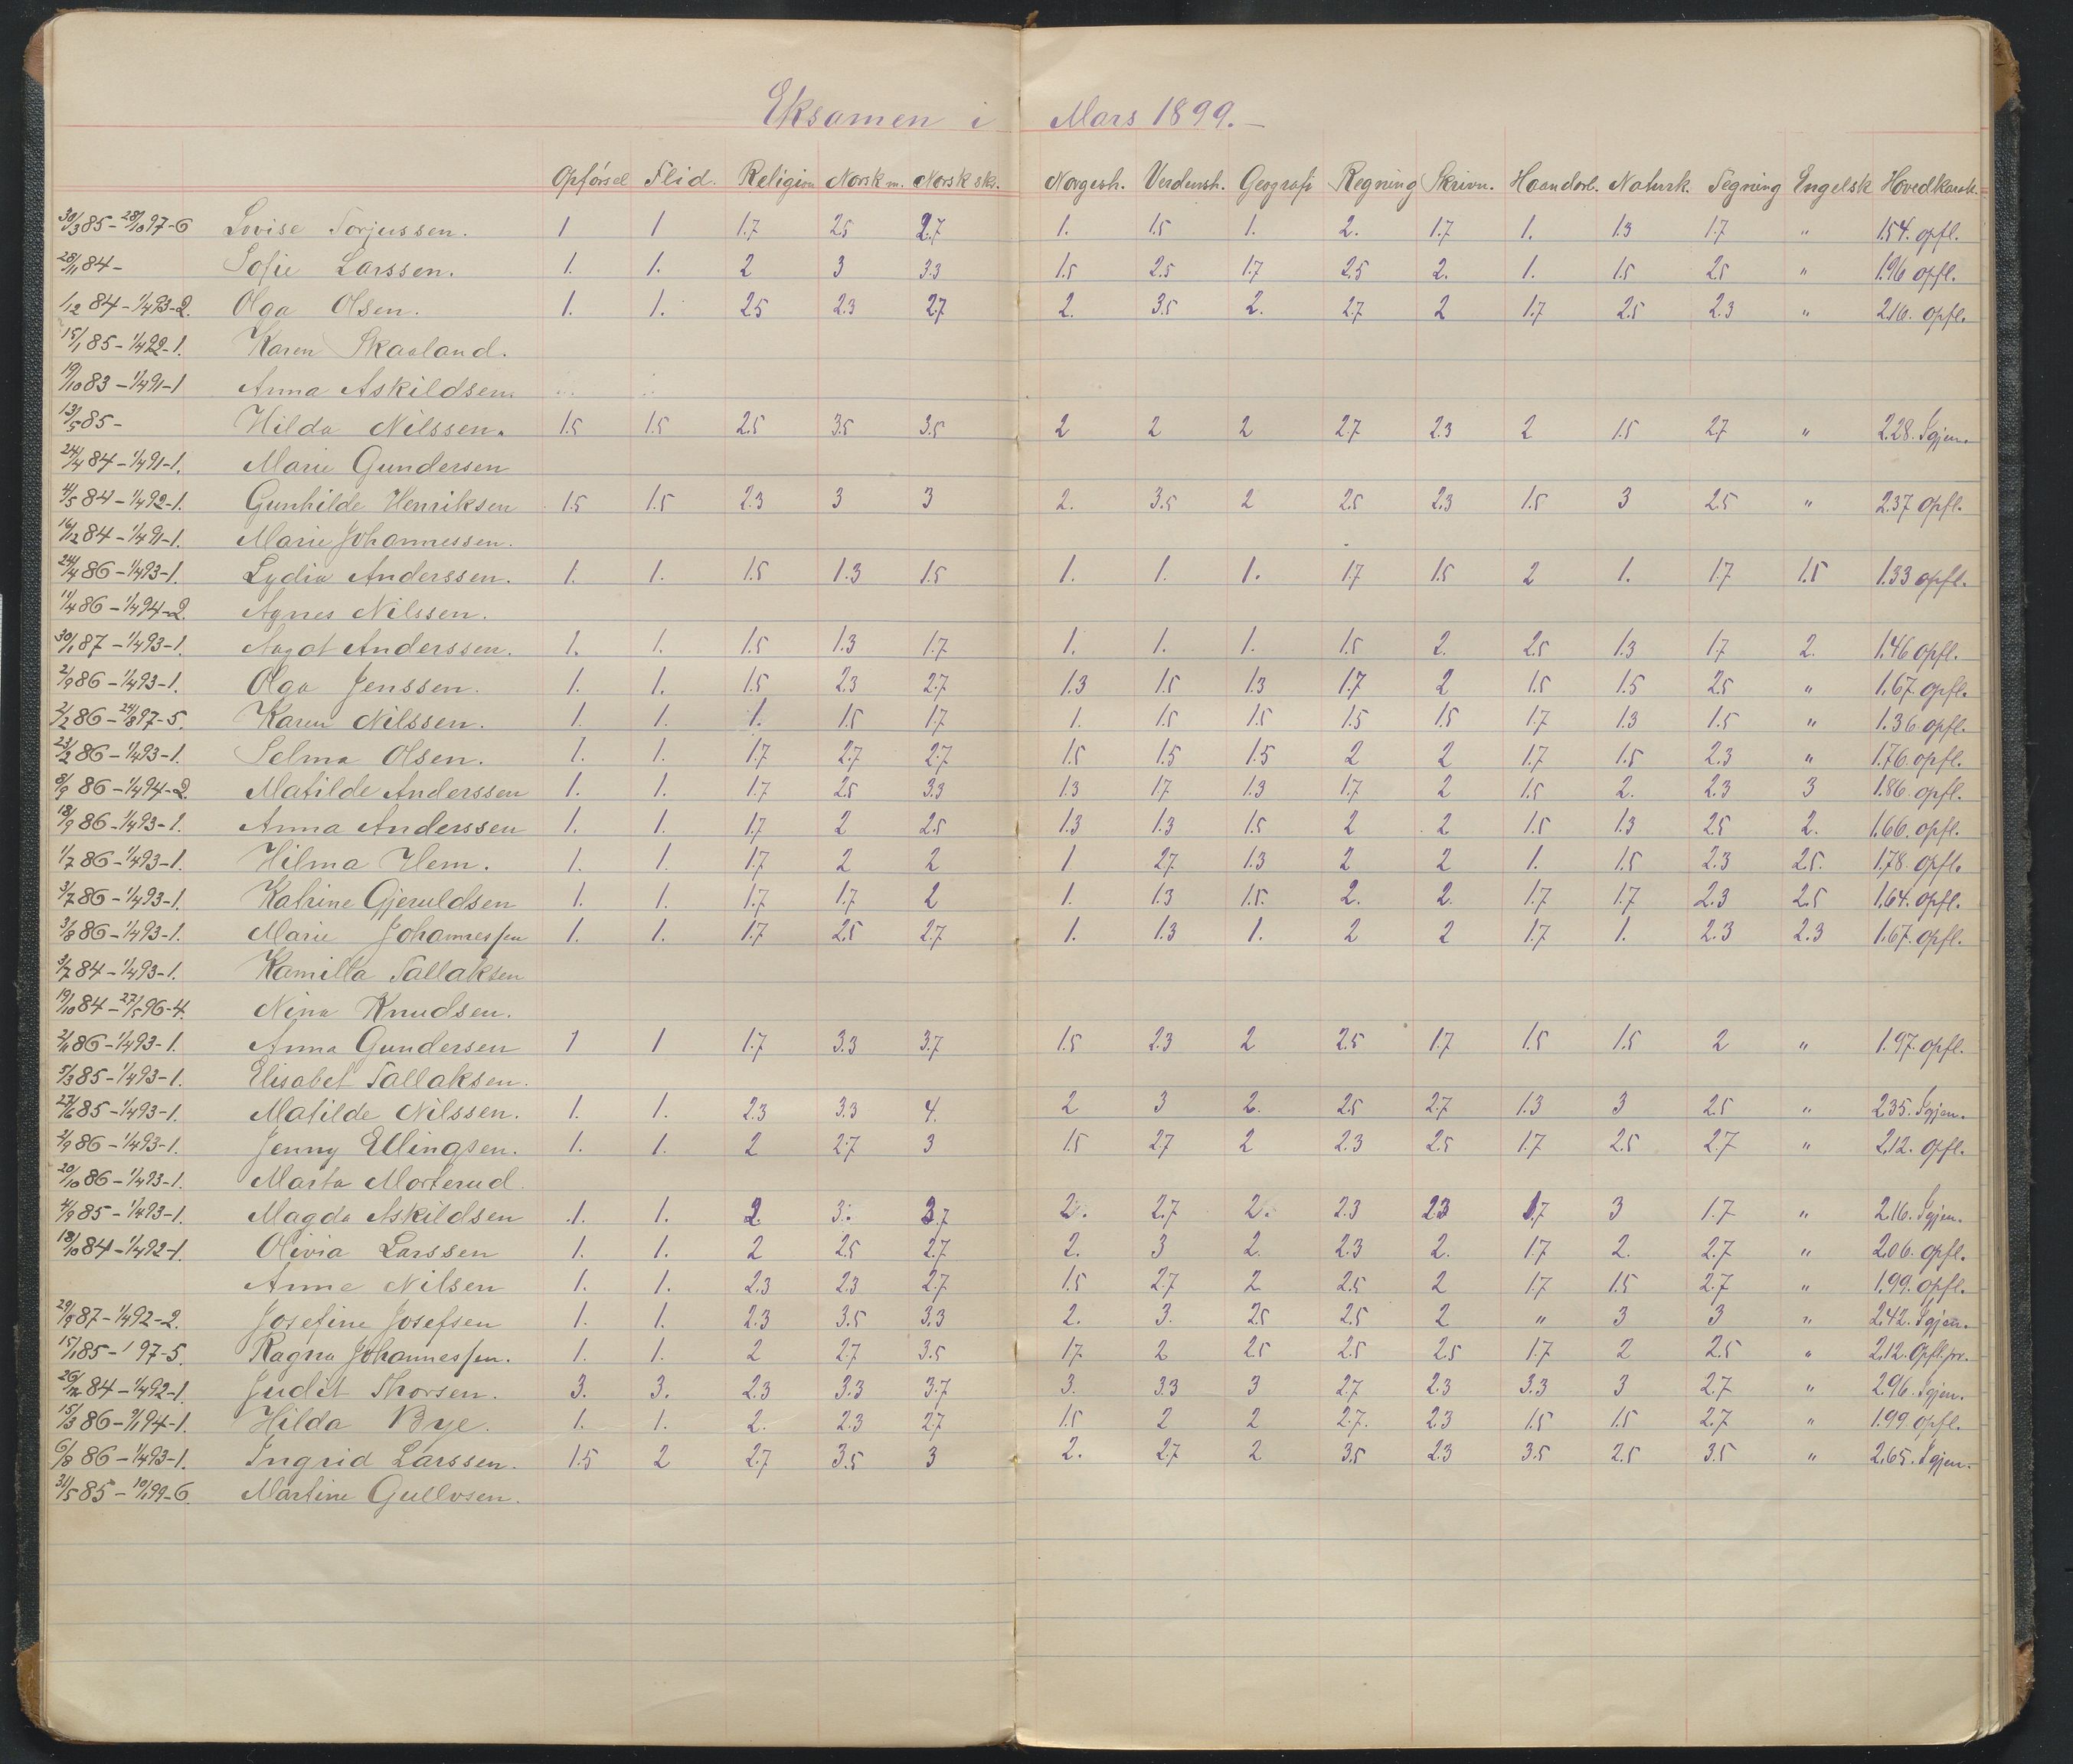 Eksamen i Mars 1899.—
Opførsel Flid. Religion Norsk m. Norsk sk. Norgesh. Verdensh. Geografi Regning Skrivn. Haandarb. Naturk. Tegning Engelsk Hovedkarak.
30/3 85 - 28/10 97-6 Lovise Torjussen. 1 1 1.7 2.5 2.7 1. 1.5 1. 2. 1.7 1. 1.3 1.7 " 1.54. opfl.
28/11 84 - Sofie Larssen. 1. 1. 2 3 3.3 1.5 2.5 1.7 2.5 2. 1. 1.5 2.5 " 1.96 opfl.
1/12 84 - 1/4 93-2. Olga Olsen. 1. 1. 2.5 2.3 2.7 2. 3.5 2. 2.7 2 1.7 2.5 2.3 " 2.16. opfl.
15/1 85 - 1/4 92-1. Karen Skaaland.
19/10 83 - 1/4 91-1 Anna Askildsen.
13/5 85 - Hilda Nilssen. 1.5 1.5 2.5 3.5 3.5 2 2 2 2.7 2.3 2 1.5 2.7 " 2.28. Igjen.
24/4 84 - 1/4 91-1. Marie Gundersen
4/5 84 - 1/4 92-1. Gunhilde Henriksen 1.5 1.5 2.3 3 3 2. 3.5 2 2.5 2.3 1.5 3 2.5 " 2.37 opfl.
16/12 84 - 1/4 91-1. Marie Johannessen.
24/4 86 - 1/4 93-1. Lydia Anderssen. 1. 1. 1.5 1.3 1.5 1. 1. 1. 1.7 1.5 2 1. 1.7 1.5 1.33 opfl.
11/4 86 - 1/4 94-2. Agnes Nilssen.
30/1 87 - 1/4 93-1. Aagot Anderssen. 1. 1. 1.5 1.3 1.7 1. 1. 1. 1.5 2. 2.5 1.3 1.7 2. 1.46 opfl.
2/9 86 - 1/4 93-1. Olga Jenssen. 1. 1. 1.5 2.3 2.7 1.3 1.5 1.3 1.7 2 1.5 1.5 2.5 " 1.67. opfl.
2/2 86 - 24/8 97-5. Karen Nilssen. 1. 1. 1. 1.5 1.7 1. 1.5 1.5 1.5 1.5 1.7 1.3 1.5 " 1.36 opfl.
23/2 86 - 1/4 93-1. Selma Olsen. 1. 1. 1.7 2.7 2.7 1.5 1.5 1.5 2 2 1.7 1.5 2.3 " 1.76. opfl.
8/9 86 - 1/4 94-2. Matilde Anderssen 1. 1. 1.7 2.5 3.3 1.3 1.7 1.3 1.7 2 1.5 2. 2.3 3 1.86. opfl.
18/9 86 - 1/4 93-1. Anna Anderssen 1. 1. 1.7 2 2.5 1.3 1.3 1.5 2 2 1.5 1.3 2.5 2. 1.66. opfl.
1/7 86 - 1/4 93-1. Hilma Hem. 1. 1. 1.7 2 2 1 2.7 1.3 2 2 1. 1.5 2.3 2.5. 1.78. opfl.
3/7 86 - 1/4 93-1. Katrine Gjeruldsen 1. 1. 1.7 1.7 2 1. 1.3 1.5. 2. 2. 1.7 1.7 2.3 2.5 1.64. opfl.
3/8 86 - 1/4 93-1. Marie Johannessen 1. 1. 1.7 2.5 2.7 1. 1.3 1. 2 2 1.7 1. 2.3 2.3 1.67. opfl.
3/7 84 - 1/4 93-1. Kamilla Tallaksen
19/10 84 - 27/5 96-4. Nina Knudsen.
2/11 86 - 1/4 93-1. Anna Gundersen 1 1 1.7 3.3 3.7 1.5 2.3 2 2.5 1.7 1.5 1.5 2 " 1.97. opfl.
5/3 85 - 1/4 93-1. Elisabet Tallaksen.
27/6 85 - 1/4 93-1. Matilde Nilssen. 1. 1. 2.3 3.3 4. 2 3 2. 2.5 2.7 1.3 3 2.5 " 2.35. Igjen.
2/9 86 - 1/4 93-1. Jenny Ellingsen. 1. 1. 2 2.7 3 1.5 2.7 2 2.3 2.5 1.7 2.5 2.7 " 2.12. opfl.
20/10 86 - 1/4 93-1. Marta Morterud.
4/9 85 - 1/4 93-1. Magda Askildsen 1. 1. 2. 3. 3.7 2. 2.7 2. 2.3 2.3 1.7 3 1.7 " 2.16. Igjen.
18/10 84 - 1/4 92-1. Olivia Larssen 1. 1. 2 2.5 2.7 2. 3 2. 2.3 2. 1.7 2. 2.7 " 2.06. opfl.
Anne Nilsen 1. 1. 2.3 2.3 2.7 1.5 2.7 2 2.5 2 1.7 1.5 2.7 " 1.99. opfl.
29/9 87 - 1/4 92-2. Josefine Josefsen 1. 1. 2.3 3.5 3.3 2. 3. 2.5 2.5 2 " 3 3 " 2.42. Igjen.
15/1 85 - 1 97-5. Ragna Johannessen. 1. 1. 2 2.7 3.5 1.7 2 2.5 2.5 2.5 1.7 2 2.5 " 2.12. Opfl. pr.
26/12 84 - 1/4 92-1. Judit Thorsen. 3. 3. 2.3 3.3 3.7 3. 3.3 3 2.7 2.3 3.3 3 2.7 " 2.96. Igjen.
15/3 86 - 9/1 94-1. Hilda Bye. 1. 1. 2. 2.3 2.7 1.5 2 2 2.7. 2.3 1.5 1.5 2.7 " 1.99 opfl.
6/8 86 - 1/4 93-1. Ingrid Larssen. 1.5 2 2.7 3.5 3 2. 2.7 2 3.5 2.3 3.5 2.5 3.5 " 2.65. Igjen.
31/5 85 - 10/1 99-6. Martine Gullosen.